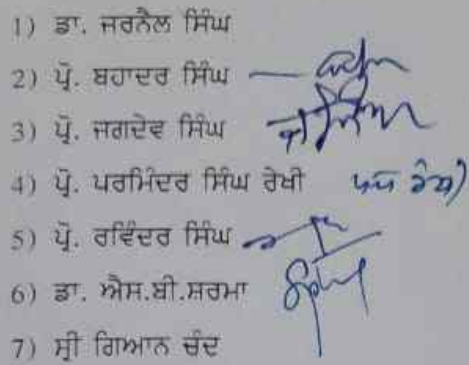 1) ਡਾ. ਜਰਨੈਲ ਸਿੰਘ
2) ਪ੍ਰੋ. ਬਹਾਦਰ ਸਿੰਘ
3) ਪ੍ਰੋ. ਜਗਦੇਵ ਸਿੰਘ
4) ਪ੍ਰੋ. ਪਰਮਿੰਦਰ ਸਿੰਘ ਰੇਖੀ
5) ਪ੍ਰੋ. ਰਵਿੰਦਰ ਸਿੰਘ
6) ਡਾ. ਐਸ.ਬੀ.ਸ਼ਰਮਾ
7) ਸ੍ਰੀ ਗਿਆਨ ਚੰਦ